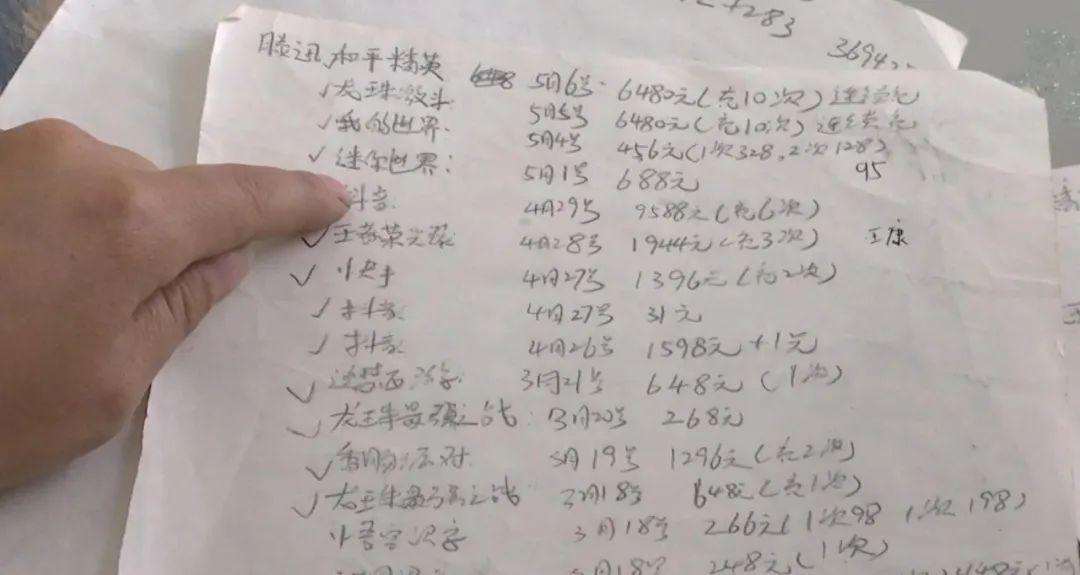 +283
3694
腾迅和平精英 5月6号 6480元(充10次)连续充
✓龙珠激斗: 5月5号 6480元(充10次)连续充
✓我的世界: 5月4号 456元(1次328。2次128)
✓迷你世界: 5月1号 688元 95
抖音: 4月29号 9588元(充6次)
✓王者荣耀: 4月28号 1944元(充3次) 王康
✓小快手 4月27号 1396元(充2次)
✓抖音: 4月27号 31元
✓抖音: 4月26号 1598元+1元
✓ 3月21号 648元(1次)
✓龙珠最强之战: 3月20号 268元
✓香肠派对 3月19号 1296元(充2次)
✓龙珠最强之战 3月18号 648元(充1次)
小悟空识字 3月18号 266元(1次98 1次198)
3月18号 248元(1次)
448元